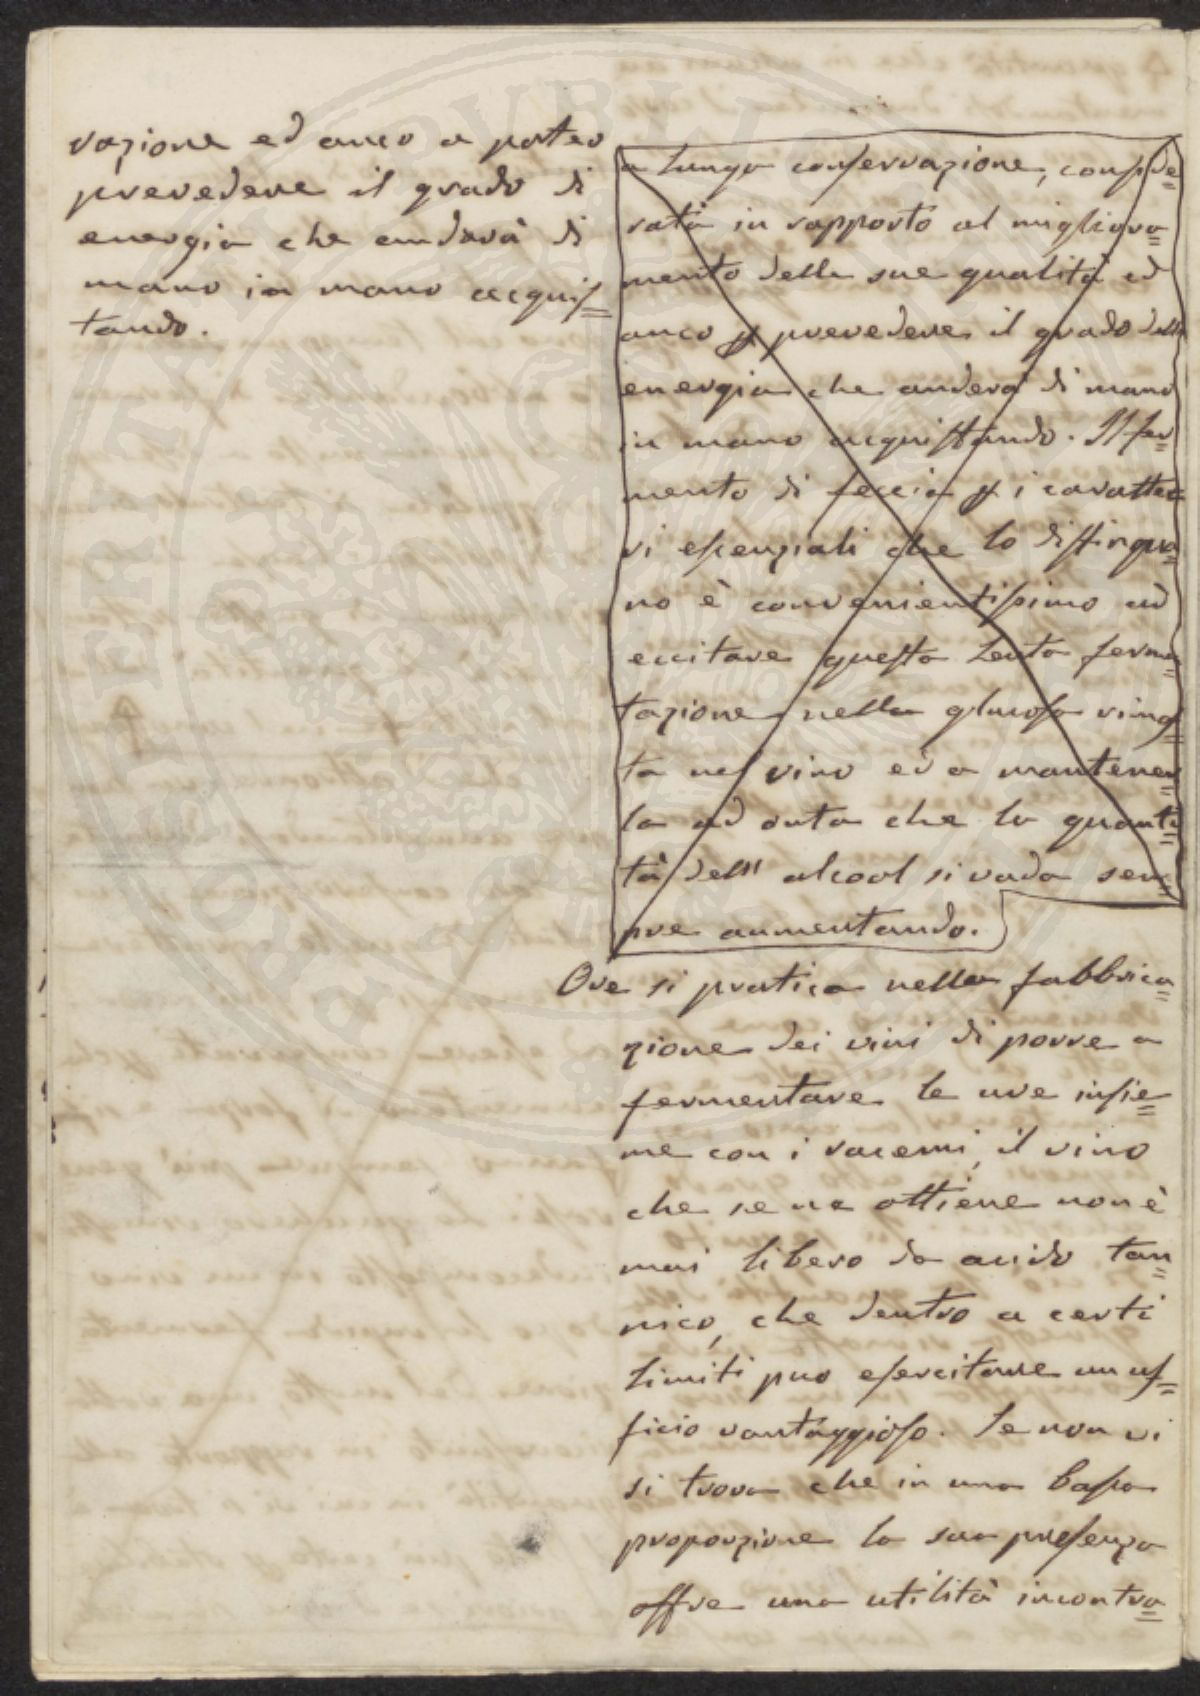 vazione ed anco a poter
prevedere il grado di
energia che anderà di
mano in mano acquis=
tando.
a lunga conservazione, conside
rata in rapporto al migliora=
mento delle sue qualità ed
anco p prevedere il grado della
energia che anderà di mano
in mano acquistando. Il fer=
mento di feccia p i caratte=
ri essenziali che lo distinguo=
no è convenientissimo ad
eccitare questa lenta fermen=
tazione nella glucosa rimas=
ta nel vino ed a mantener=
la ad onta che la quanti=
tà dell' alcool si vada sem=
pre aumentando.
Ove si pratica nella fabbrica=
zione dei vini di porre a
fermentare le uve insie=
me con i racemi, il vino
che se ne ottiene non è
mai libero da acido tan=
nico, che dentro a certi
limiti puo esercitare un uf=
ficio vantaggioso. Se non vi
si trova che in una bassa
proporzione la sua presenza
offre una utilità incontra=
PROPERTY PUBLI